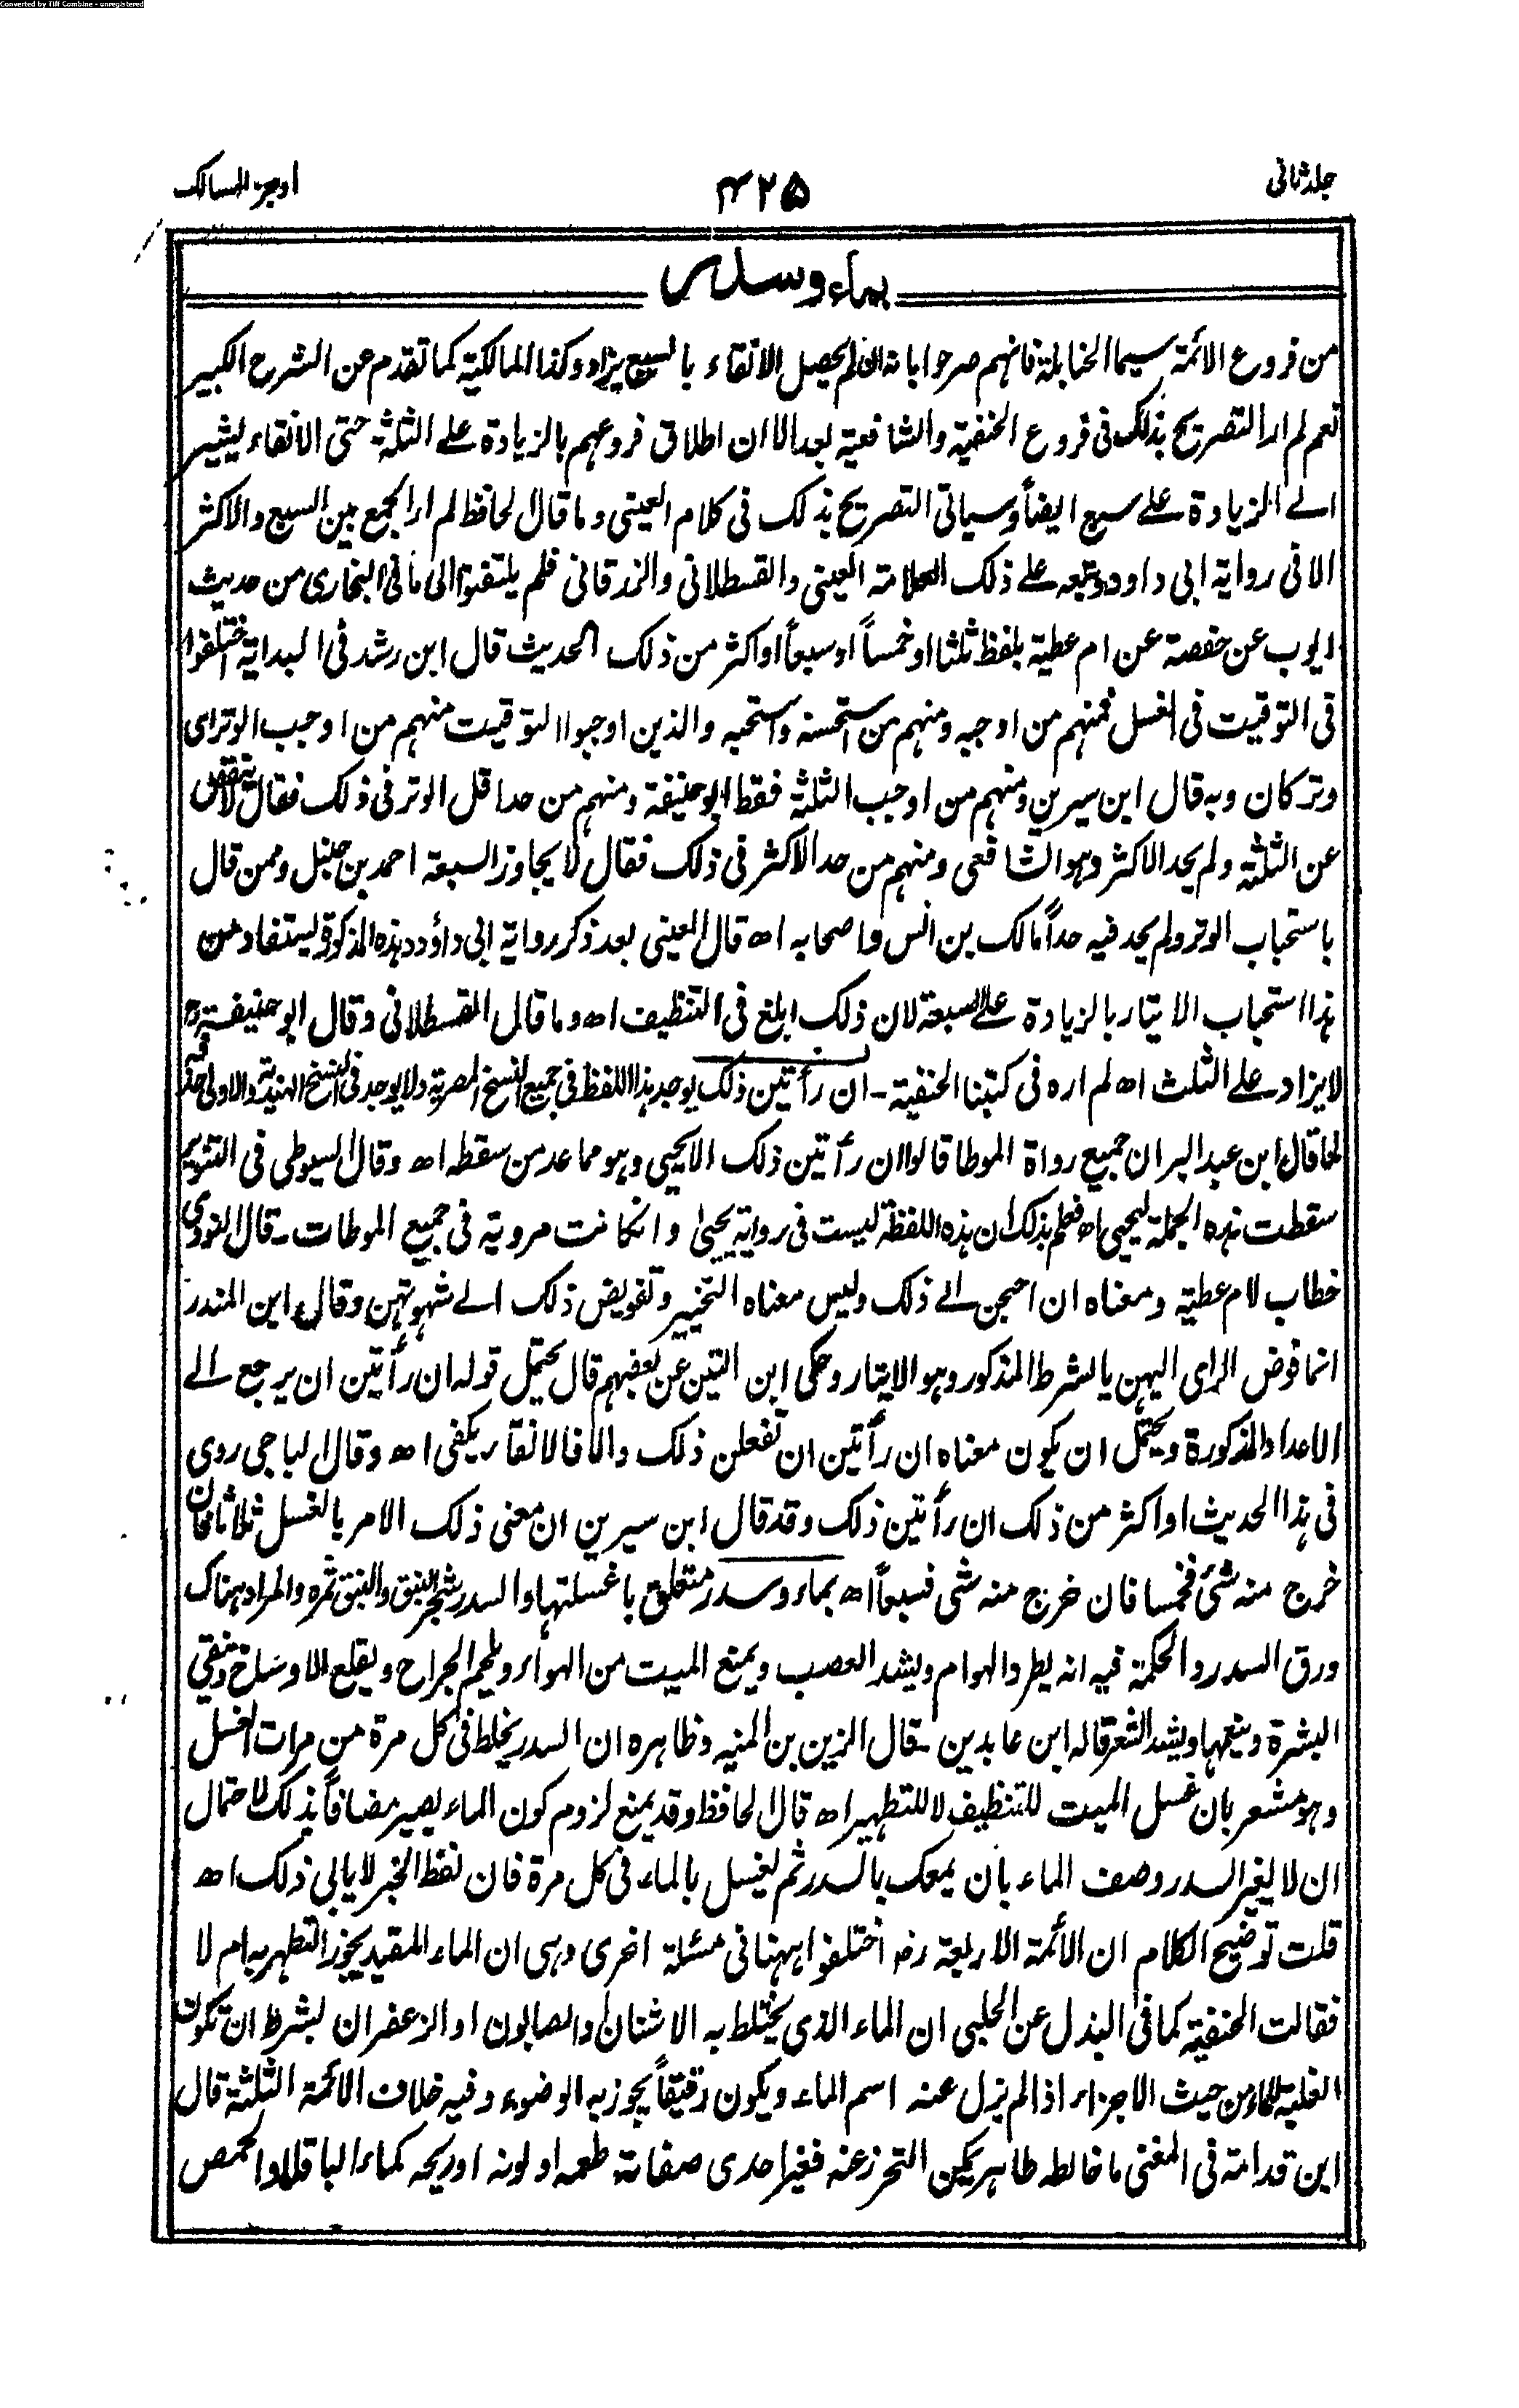 Converted by Tiff Combine - unregistered
جلد ثانی
۴۲۵
اوجز المسالک
بماء وسدر
من فروع الائمة سیما الحنابلة فانهم صرحوا بانه ان لم یحصل الانقاء بالسبع یزاد وکذا المالکیة کما تقدم عن الشرح الکبیر
نعم لم ار التصریح بذلک فی فروع الحنفیة والشافعیة بعد الا ان اطلاق فروعهم بالزیادة علی الثلثة حتی الانقاء یشیر
الی الزیادة علی سبع ایضاً وسیاتی التصریح بذلک فی کلام العینی وما قال الحافظ لم ار الجمع بین السبع والاکثر
الا فی روایة ابی داود وتبعه علی ذلک العلامة العینی والقسطلانی والزرقانی فلم یلتفتوا الی ما فی البخاری من حدیث
ایوب عن حفصة عن ام عطیة بلفظ ثلثا او خمساً او سبعاً او اکثر من ذلک الحدیث قال ابن رشد فی البدایة اختلفوا
فی التوقیت فی الغسل فمنهم من اوجبه ومنهم من استحسنه واستحبه والذین اوجبوا التوقیت منهم من اوجب الوتر ای
وتر کان وبه قال ابن سیرین ومنهم من اوجب الثلثة فقط ابو حنیفة ومنهم من حد اقل الوتر فی ذلک فقال لا ینقص
عن الثلثة ولم یحد الاکثر وهو الشافعی ومنهم من حد الاکثر فی ذلک فقال لا یجاوز السبعة احمد بن حنبل وممن قال
باستحباب الوتر ولم یحد فیه حداً مالک بن انس واصحابه اھ قال العینی بعد ذکر روایة ابی داؤد هذه المذکورة یستفاد من
هذا استحباب الایتار بالزیادة علی السبعة لان ذلک ابلغ فی التنظیف اھ وما قال القسطلانی وقال ابو حنیفة رح
لا یزاد علی الثلث اھ لم اره فی کتبنا الحنفیة - ان رأیتن ذلک یوجد هذا اللفظ فی جمیع النسخ المصریة ولا یوجد فی النسخ الهندیة والاولی حذفه
لما قال ابن عبد البر ان جمیع رواة الموطا قالوا ان رأیتن ذلک الا یحیی وهو مما عد من سقطه اھ وقال السیوطی فی التنویر
سقطت هذه الجملة لیحیی اھ فعلم بذلک ان هذه اللفظة لیست فی روایة یحییٰ وان کانت مرویة فی جمیع الموطات - قال النووی
خطاب لام عطیة ومعناه ان احتجن الی ذلک ولیس معناه التخییر وتفویض ذلک الی شهوتهن وقال ابن المنذر
انما فوض الرای الیهن بالشرط المذکور وهو الایتار وحکی ابن التین عن بعضهم قال یحتمل قوله ان رأیتن ان یرجع الی
الاعداد المذکورة ویحتمل ان یکون معناه ان رأیتن ان تفعلن ذلک والا فالانقاء یکفی اھ وقال الباجی روی
فی هذا الحدیث او اکثر من ذلک ان رأیتن ذلک وقد قال ابن سیرین ان معنی ذلک الامر بالغسل ثلاثا فان
خرج منه شئ فخمسا فان خرج منه شی فسبعاً اھ بماء وسدر متعلق باغسلنها والسدر شجر النبق والنبق ثمره والمراد هناک
ورق السدر والحکمة فیه انه یطرد الهوام ویشد العصب ویمنع المیت من الهواء ویلحم الجراح ویقلع الاوساخ وینقی
البشرة وینعمها ویشد الشعر قاله ابن عابدین - قال الزین بن المنیر وظاهره ان السدر یخلط فی کل مرة من مرات الغسل
وهو مشعر بان غسل المیت للتنظیف لا للتطهیر اھ قال الحافظ وقد یمنع لزوم کون الماء یصیر مضافاً بذلک لاحتمال
ان لا یغیر السدر وصف الماء بان یمعک بالسدر ثم یغسل بالماء فی کل مرة فان لفظ الخبر لا یابی ذلک اھ
قلت توضیح الکلام ان الأئمة الاربعة رضـ اختلفوا ههنا فی مسئلة اخری وهی ان الماء المقید یجوز التطهر به ام لا
فقالت الحنفیة کما فی البذل عن الحلبی ان الماء الذی یختلط به الاشنان والصابون او الزعفران بشرط ان تکون
الغلبة للماء من حیث الاجزاء اذا لم یزل عنه اسم الماء ویکون رقیقاً یجوز به الوضوء وفیه خلاف الائمة الثلثة قال
ابن قدامة فی المغنی ما خالطه طاهر یمکن التحرز عنه فغیر احدی صفاته طعمه او لونه او ریحه کماء الباقلا والحمص